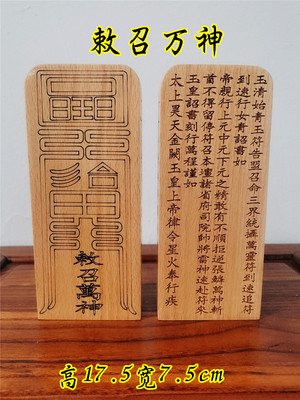 敕召万神
敕召萬神
玉清始青玉符告盟召命三界統攝萬靈符到速追符
到速行女青詔書如
帝親行上元中元下元之精敢有不順拒逆萬神斬
首不得留停符召本壇諸省府司院帥將雷神速赴符來
玉皇詔書刻行萬程謹如
太上昊天金闕玉皇上帝律令星火奉行疾
高17.5宽7.5cm